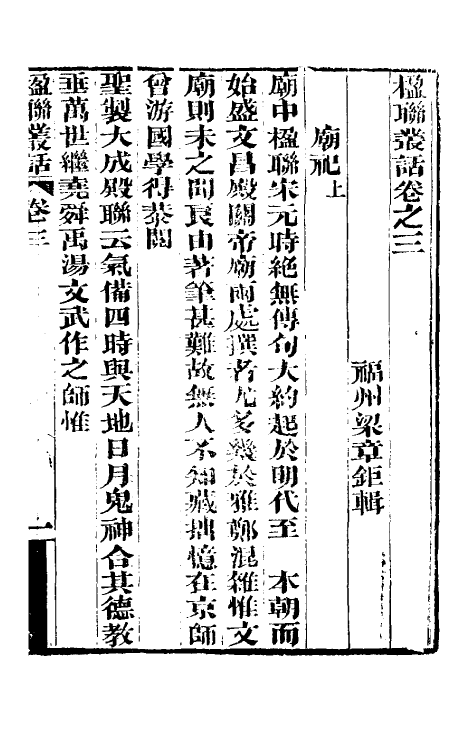 楹聯叢話卷之三
福州梁章鉅輯
廟祀上
廟中楹聯宋元時絕無傳句大約起於明代至 本朝而
始盛文昌殿關帝廟兩處撰者尤多幾於雅鄭混雜惟文
廟則未之聞良由著筆甚難故無人不知藏拙憶在京師
曾游國學得恭閱
聖製大成殿聯云氣備四時與天地日月鬼神合其德教
垂萬世繼堯舜禹湯文武作之師惟
楹聯叢話 卷三 一